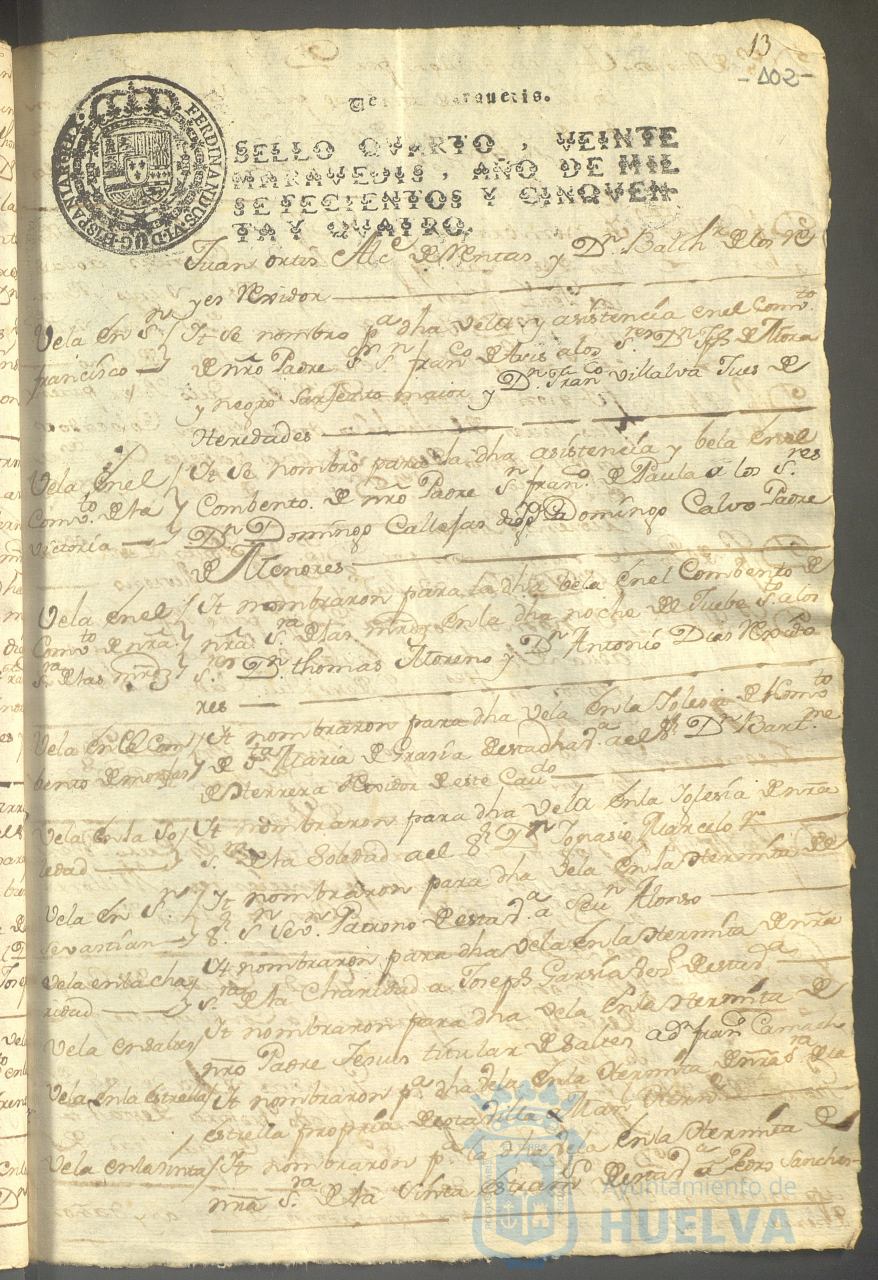 13
-102-
FERDINANDUS·VI·D·G·HISPANIAR·REX·
SELLO QVARTO, VEINTE
MARAVEDIS, AÑO DE MIL
SETECIENTOS Y CINQVEN-
TA Y QVATRO.
Juan ortis Alce de Mentas y Dn Balthr de los Re
yes Rexidor
Vela en Sn
francisco
It se nombro pa dha vela y asistencia en el Comto
de nro Padre Sn franco de Asis a los Sres Dn de Mora
y negro Sarjento maior y Dn Franco Villalva Jues de
Heredades
Vela en el
Comto de la
victoria
It se nombro para la dha asistencia y bela en el
Combento de nro Padre Sn franco de Paula a los Sres
Dn Domingo Callejas Domingo Calvo Padre
de Menores
Vela en el
Comto de nra
Sa de las mrdz
It nombraron para la dha bela en el Combento de
nra Sra de las mrdz en la dha noche de Juebes Sto a los
Sres Dn thomas Moreno y Dn Antonio Dias Rexido
res
Vela en el Com
bento de monjas
It nombraron para dha vela en la Iglesia de Comto
de Sta Maria de Grasia de esta dha a el Sr Dn Bartme
de Herrera Rexidor de este Caudo
Vela en la So
ledad
It nombraron para dha vela en la Iglesia de nra
Sra de la Soledad a el Sr Dn Ignasio Marcelo
Vela en Sn
sevastian
It nombraron para dha vela en la Hermita de
Sr Sn Sevn Patrono de esta a Alonso
Vela en la cha
ridad
It nombraron para dha vela en la Hermita de nra
Sra de la Charidad a Joseph Garsia de esta
Vela en saltes
It nombraron para dha vela en la Hermita de
nro Padre Jesus titular de Saltes a dn franco Camacho
Vela en la estrella
It nombraron pa dha vela en la Hermita de nra Sra de la
estrella propria de esta villa
Vela en la sinta
It nombraron pa la dha vela en la Hermita de
nra Sra de la Sinta a Pedro Sanches
Ayuntamiento de
HUELVA